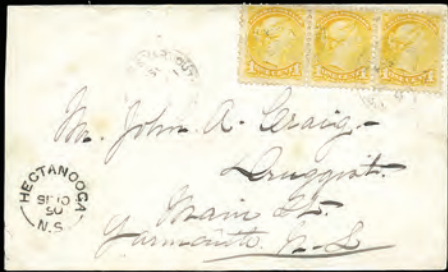 Mr. John A. Craig.
Druggist.
Main St.
Yarmouth N.S
HECTANOOGA
SP 10
90
N.S